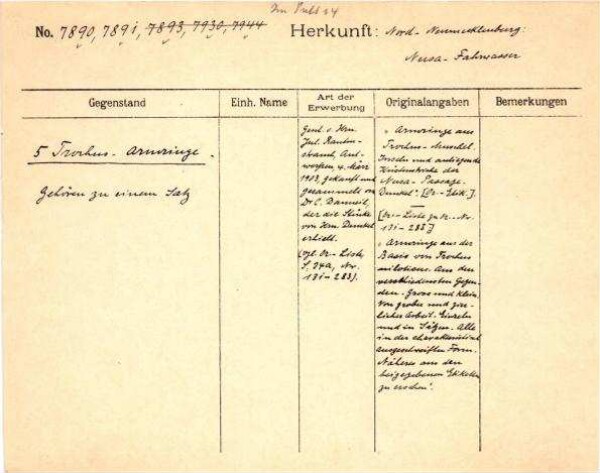 No. 7890, 7891, 7893, 7930, 7944
Herkunft: Nord-Neumecklenburg:
Nusa-Fahrwasser
Gegenstand
Einh. Name
Art der
Erwerbung
Originalangaben
Bemerkungen
5 Trochus-Armringe.
Gehören zu einem Satz
v. Hrn.
Jul.
4. März
1908, gekauft und
gesammelt von
Dr. C.
der die Stücke
von Hrn. Dunkel
erhielt.
(vgl. Or-Liste,
S. 24a, Nr.
181-283).
"Armringe aus
Trochus-Muschel.
Inseln und anliegende
der
Nusa-Passage.
Dunkel". [Or-Etik.].
[Or-Liste zu Or-Nr.
181-283]
"Armringe aus der
Basis von Trochus
niloticus. Aus den
verschiedensten Gegen-
den. Gross und klein.
Von grober und zier-
licher Arbeit. Einzeln
und in Sätzen. Alle
in der charakteristisch
ausgeschweiften Form.
Näheres aus den
beigegebenen Etiketten
zu ersehen".